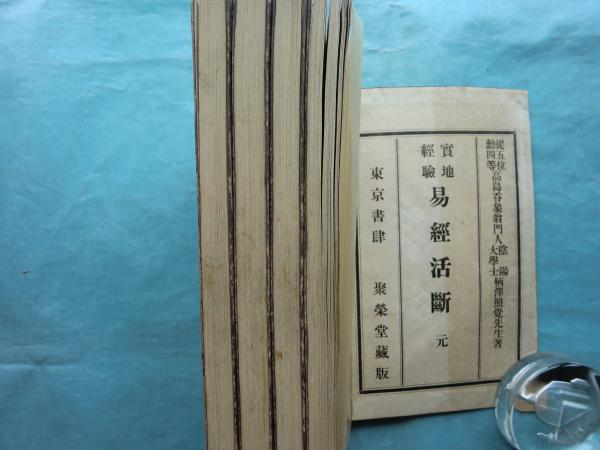 從五位
勳四等高島呑象翁門人陰陽
大學士柄澤照覺先生著
實地
經驗
易經活斷 元
東京書肆 聚榮堂藏版